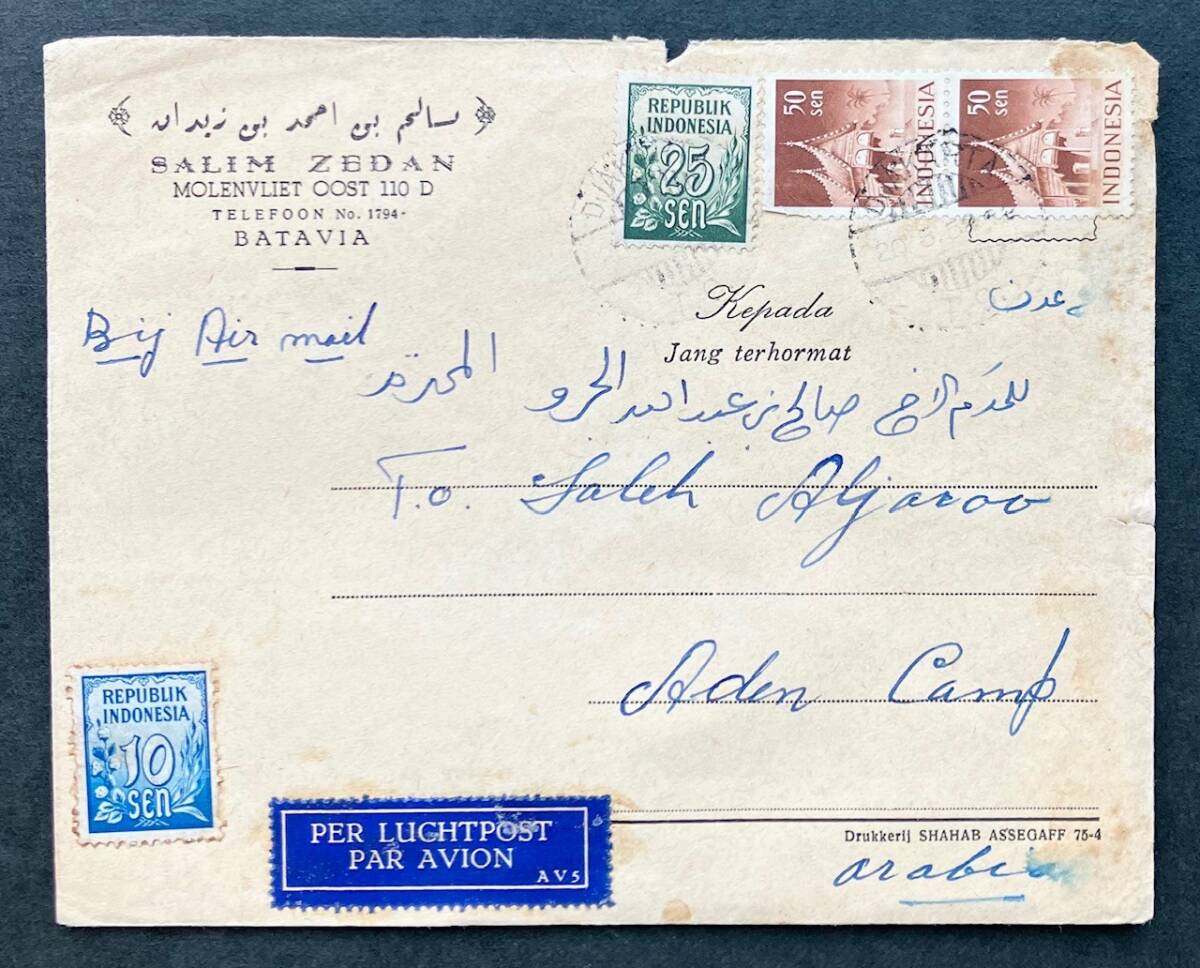 سالم بن احمد بن زيدان
SALIM ZEDAN
MOLENVLIET OOST 110 D
TELEFOON No. 1794-
BATAVIA
REPUBLIK
INDONESIA
25
SEN
50
sen
INDONESIA
50
sen
INDONESIA
Bij Air mail
Kepada
Jang terhormat
عدن
الاخ صالح بن عبد الله الجرو المحترم
T.o. Saleh Aljaroo
Aden Camp
REPUBLIK
INDONESIA
10
SEN
PER LUCHTPOST
PAR AVION
AV5
Drukkerij SHAHAB ASSEGAFF 75-4
arabia